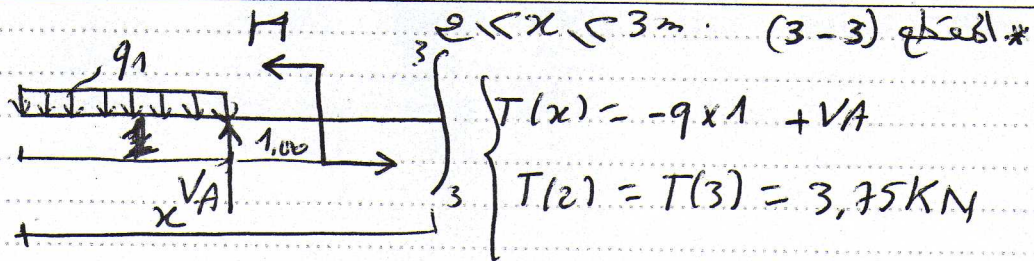 * المقطع (3-3) 2 ≤ x ≤ 3m.
H
q1
3
1,00
VA
x
3
T(x) = -q x 1 + VA
T(2) = T(3) = 3,75KN